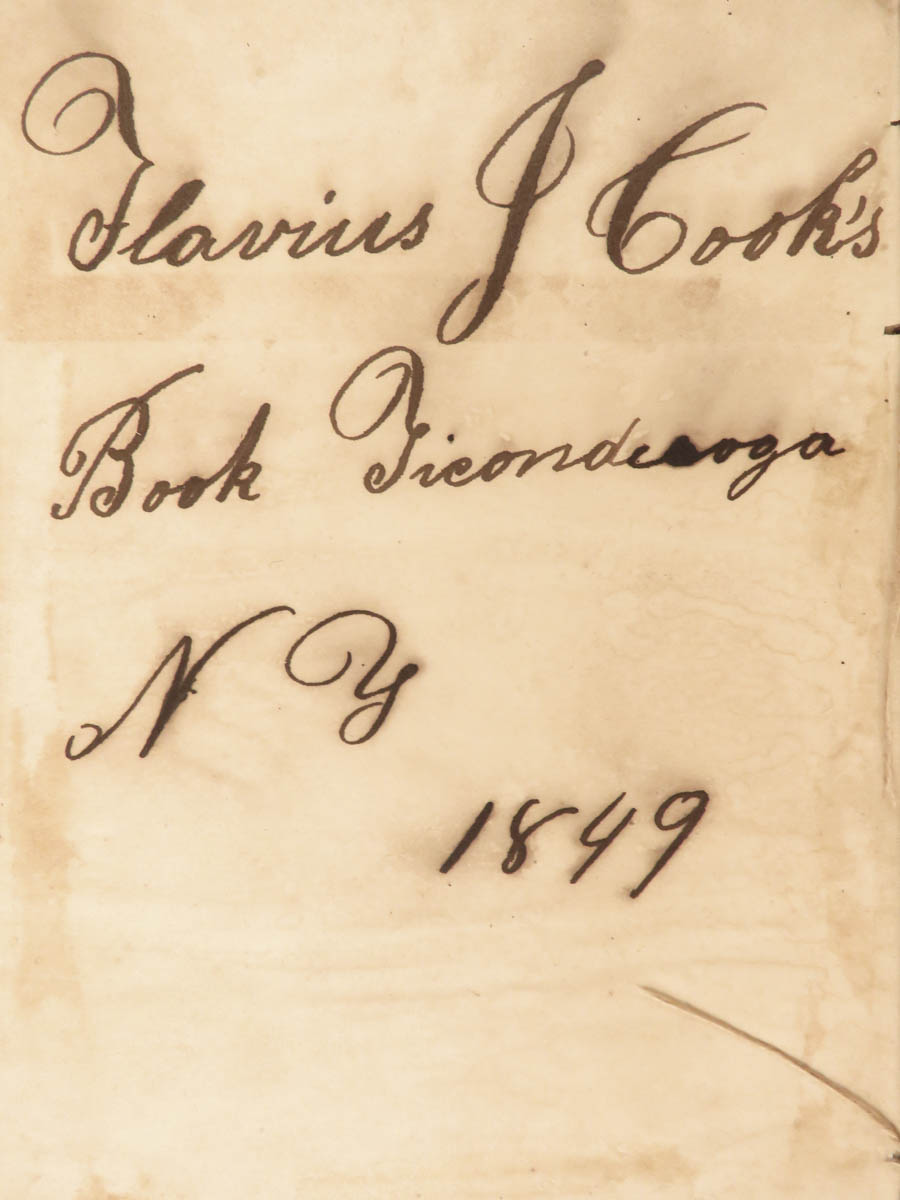 Flavius J Cook's
Book Ticonderoga
N Y
1849